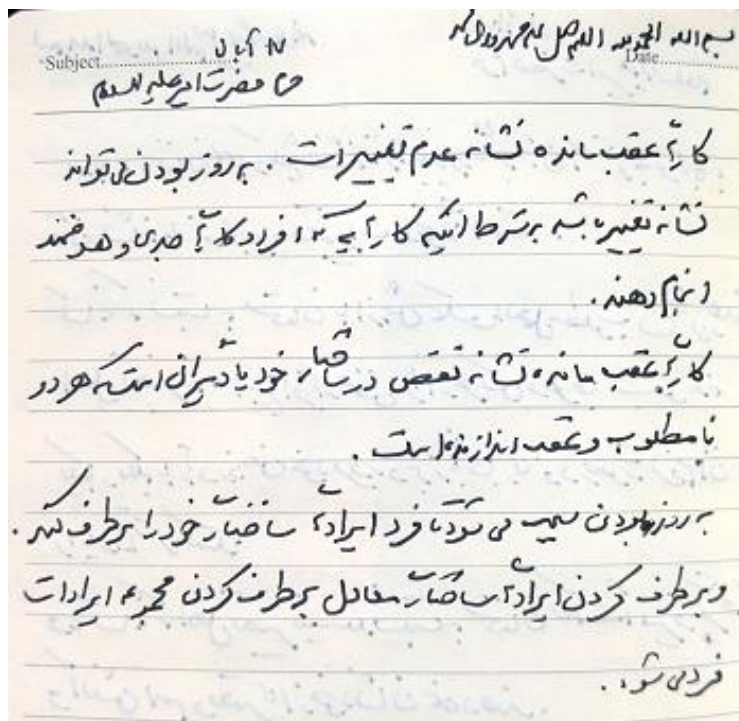 بسم الله الحمد لله اللهم صل علی محمد و آل محمد
Date
Subject ۱۷ آبان
حضرت امیر علیه السلام
کارهای عقب مانده نشانه عدم تغییر است. به روز بودن می تواند
نشانه تغییر باشد به شرط اینکه کارهایی که افراد کارهای جدی و هدفمند
انجام دهند.
کارهای عقب مانده نشانه نقص در ساختار خود یا دیگران است که هر دو
نامطلوب و عقب اندازنده است.
به روز بودن سبب می شود تا فرد ایرادهای ساختار خود را برطرف کند.
و برطرف کردن ایرادهای ساختار معادل برطرف کردن مجموعه ایرادات
فرد می شود.